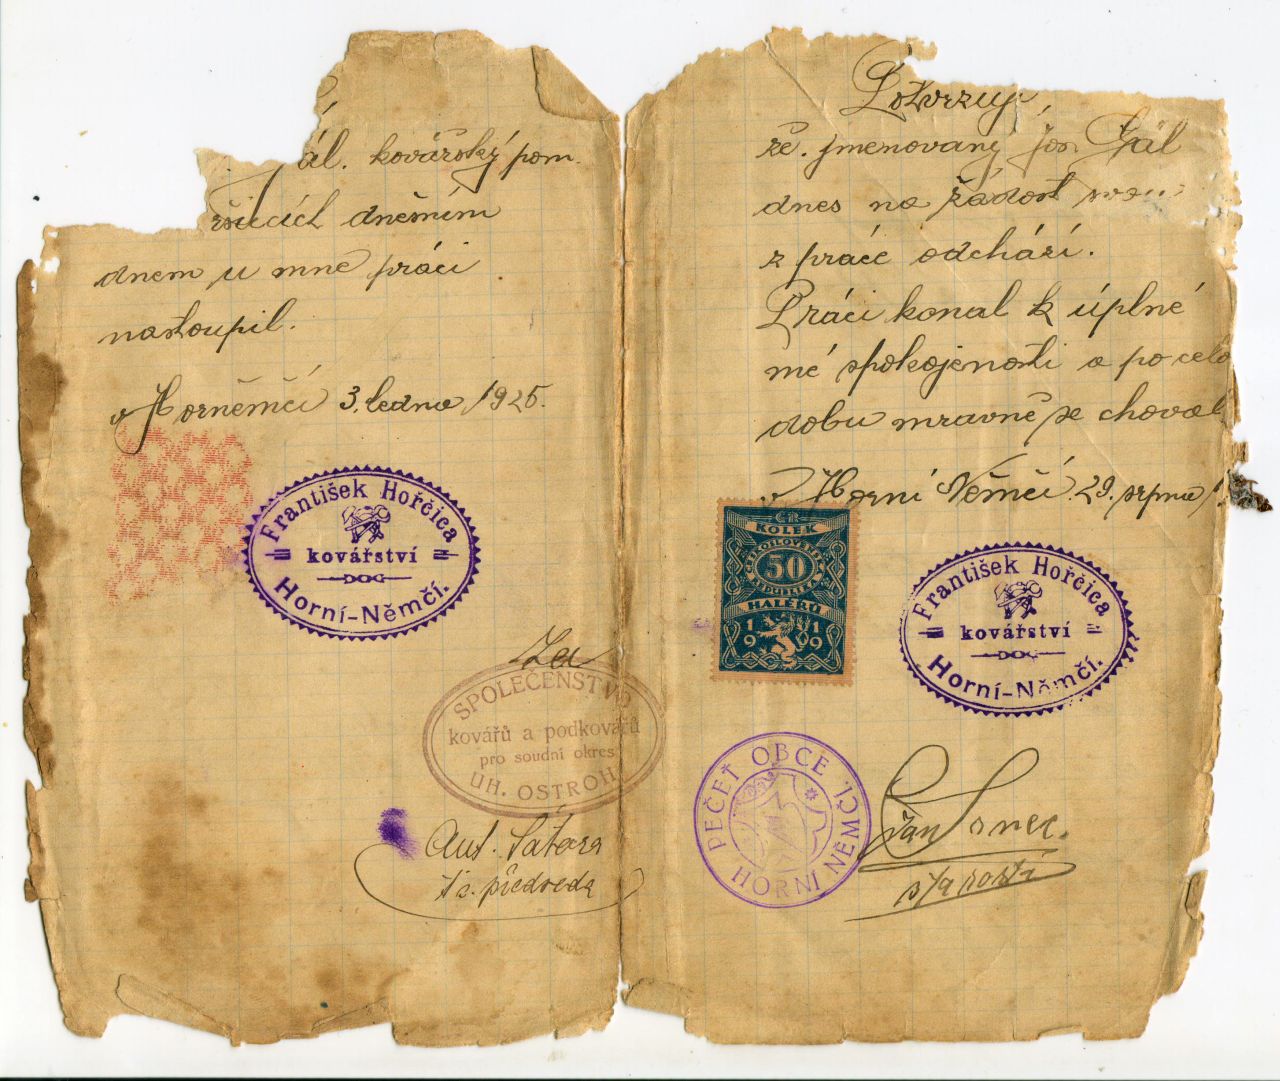 ál. kovářský pom.
dnešním
dnem u mne práci
nastoupil.
v Horněmčí 3. ledna 1925.
František Hořčica
kovářství
Horní-Němčí.
Za
SPOLEČENSTVO
kovářů a podkovářů
pro soudní okres
UH. OSTROH
Ant.
předseda
Potvrzuji,
že jmenovaný Jos Gál
dnes na žádost
z práce odchází.
Práci konal k úplné
mé spokojenosti a po celo
dobu mravně se choval
v Horní Němčí 29. srpna 1
ČR
KOLEK
ČESKOSLOVENSKÁ
50
REPUBLIKA
HALÉŘŮ
1919
František Hořčica
kovářství
Horní-Němčí.
PEČEŤ OBCE
HORNÍ NĚMČÍ.
Jan
starosta